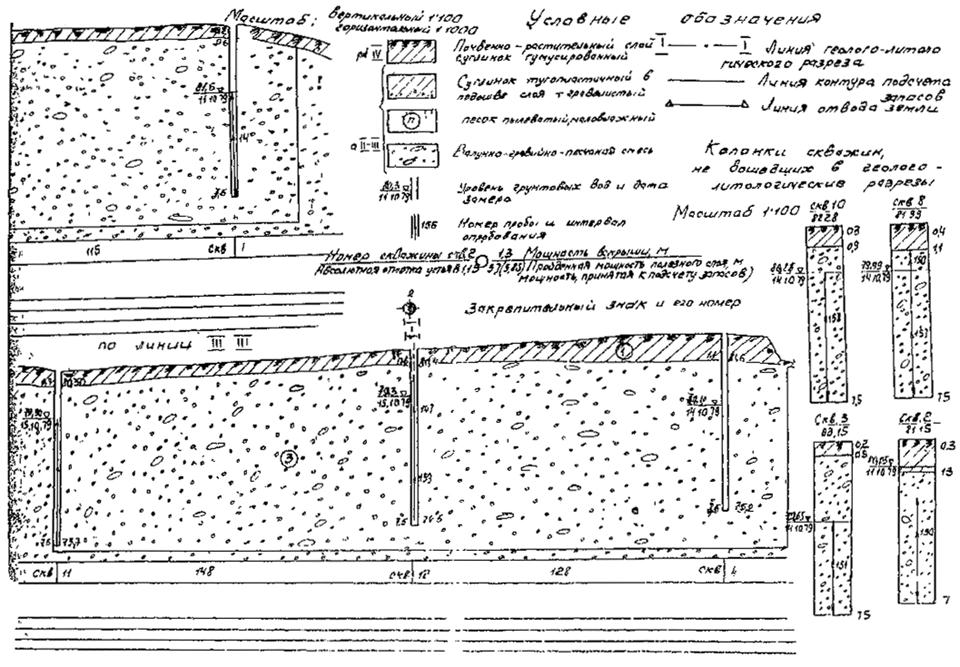 Масштаб: Вертикальный 1:100
горизонтальный 1:1000
Условные обозначения
pd IV
Почвенно-растительный слой
суглинок гумусированный
Суглинок тугопластичный в
подошве слоя
песок пылеватый, маловлажный
а II-III
Валунно-гравийно-песчаная смесь
11.10.79
Уровень грунтовых вод и дата
замера
156
Номер пробы и интервал
опробования
Номер скважины скв.2
1,3 Мощность вскрыши, м
Абсолютная отметка устья
Пройденная мощность полезного слоя, м
мощность, принятая к подсчету запасов)
2
Закрепительный знак и его номер
I I
Линия геолого-литоло
гического разреза
Линия контура подсчета
запасов
Линия отвода земли
Колонки скважин,
не вошедших в геолого-
литологические разрезы
Масштаб 1:100
11.10.79
14
7,5
115
скв 1
по линии III III
15.10.79
7,5 73,7
3
15.10.79
107
7,5
1
14.10.79
7,5
скв 11
148
скв 12
128
скв 4
Скв 10
82.28
0,3
0,9
14.10.79
7,5
Скв 8
81.99
0,4
1,1
14.10.79
150
157
7,5
Скв. 3
83,15
0,2
0,5
14.10.79
151
7,5
Скв. 2
81.15
0,3
1,3
11.10.79
190
7